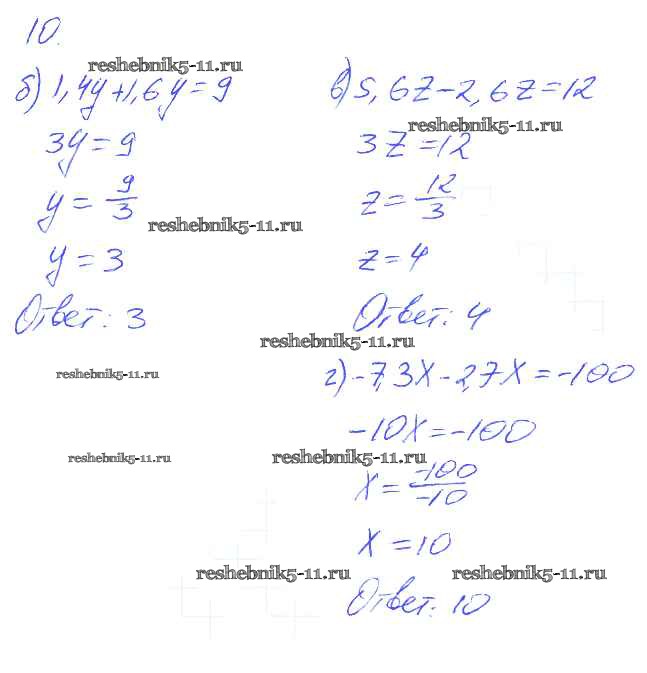 10.
reshebnik5-11.ru
б) 1,4y+1,6y=9
3y=9
y=9/3
reshebnik5-11.ru
y=3
Ответ: 3
в) 5,6z-2,6z=12
reshebnik5-11.ru
3z=12
z=12/3
z=4
Ответ: 4
reshebnik5-11.ru
reshebnik5-11.ru
г) -7,3x-2,7x=-100
-10x=-100
reshebnik5-11.ru
reshebnik5-11.ru
x=-100/-10
x=10
reshebnik5-11.ru
reshebnik5-11.ru
Ответ: 10